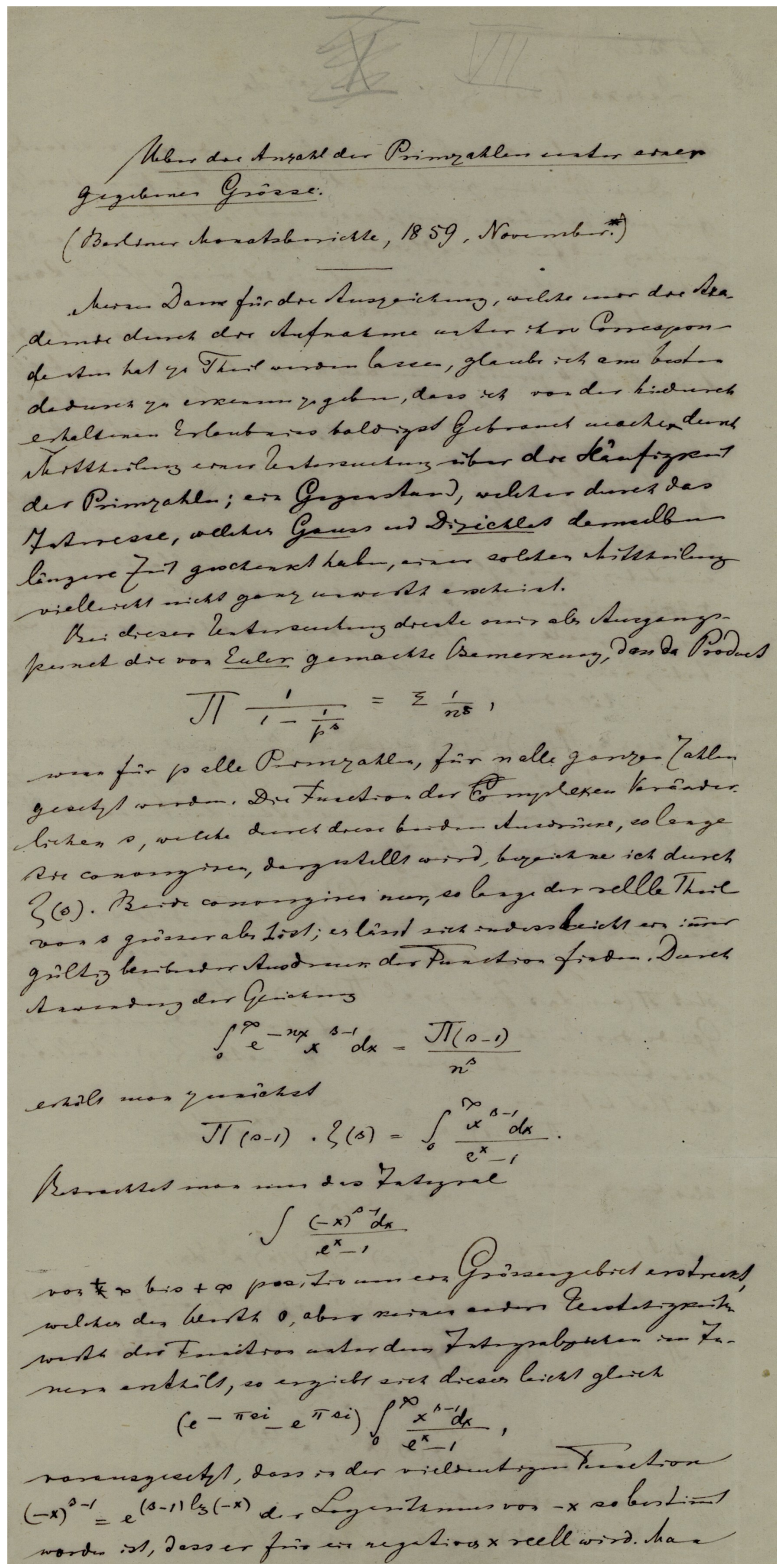 X VII
Ueber die Anzahl der Primzahlen unter einer
gegebenen Grösse.
(Berliner Monatsberichte, 1859, November.*)
Meinen Dank für die Auszeichnung, welche mir die Aka-
demie durch die Aufnahme unter ihre Correspon-
denten hat zu Theil werden lassen, glaube ich am besten
dadurch zu erkennen zu geben, dass ich von der hiedurch
erhaltenen Erlaubniss baldigst Gebrauch mache durch
Mittheilung einer Untersuchung über die Häufigkeit
der Primzahlen; ein Gegenstand, welcher durch das
Interesse, welches Gauss und Dirichlet demselben
längere Zeit geschenkt haben, einer solchen Mittheilung
vielleicht nicht ganz unwerth erscheint.
Bei dieser Untersuchung diente mir als Ausgangs-
punct die von Euler gemachte Bemerkung, dass das Product
∏ 1/(1 − 1/p^s) = Σ 1/n^s,
wenn für p alle Primzahlen, für n alle ganzen Zahlen
gesetzt werden. Die Function der complexen Veränder-
lichen s, welche durch diese beiden Ausdrücke, so lange
sie convergiren, dargestellt wird, bezeichne ich durch
ζ(s). Beide convergiren nur, so lange der reelle Theil
von s grösser als 1 ist; es lässt sich indess leicht ein immer
gültig bleibender Ausdruck der Function finden. Durch
Anwendung der Gleichung
∫_0^∞ e^{−nx} x^{s−1} dx = Π(s−1)/n^s
erhält man zunächst
Π(s−1) . ζ(s) = ∫_0^∞ x^{s−1} dx/(e^x − 1).
Betrachtet man nun das Integral
∫ (−x)^{s−1} dx/(e^x − 1)
von + ∞ bis + ∞ positiv um ein Grössengebiet erstreckt,
welches den Werth 0, aber keinen andern Unstetigkeits
werth der Function unter dem Integralzeichen im In-
nern enthält, so ergiebt sich dieses leicht gleich
(e^{−πsi} − e^{πsi}) ∫_0^∞ x^{s−1} dx/(e^x − 1),
vorausgesetzt, dass in der vieldeutigen Function
(−x)^{s−1} = e^{(s−1) lg(−x)} der Logarithmus von −x so bestimmt
worden ist, dass er für ein negatives x reell wird. Man